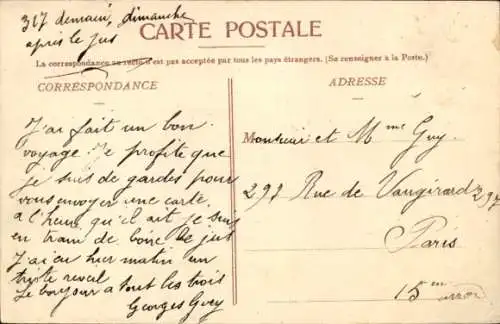 317 demain, dimanche
après le jus
CARTE POSTALE
La correspondance au recto n'est pas acceptée par tous les pays étrangers. (Se renseigner à la Poste.)
CORRESPONDANCE
J'ai fait un bon
voyage. Je profite que
je suis de gardes pour
vous envoyer une carte
a l'heure qu'il ait je suis
en train de boire le jus
J'ai eu hier matin un
triste reveil
Le bonjour a tout les trois
Georges Guy
ADRESSE
Monsieur et Mme Guy.
297 Rue de Vaugirard 297
Paris
15em arron